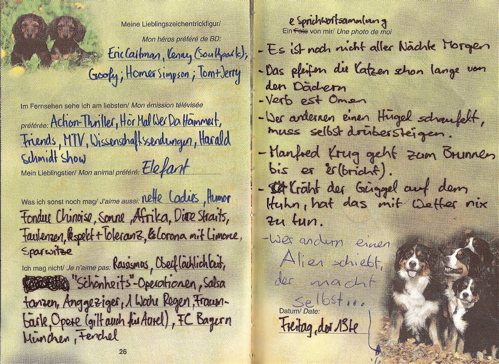 Meine Lieblingszeichentrickfigur/
Mon héros préféré de BD:
Eric Cartman, Kenny (Southpark),
Goofy, Homer Simpson, Tom+Jerry
Im Fernsehen sehe ich am liebsten/ Mon émission télévisée
préférée: Action-Thriller, Hör Mal Wer Da Hämmert,
Friends, MTV, Wissenschaftssendungen, Harald
Schmidt Show
Mein Lieblingstier/ Mon animal préféré: Elefant
Was ich sonst noch mag/ J'aime aussi: nette Ladies, Humor
Fondue Chinoise, Sonne, Afrika, Dire Straits,
Faulenzen, Respekt + Toleranz, Corona mit Limone,
Sparwitze
Ich mag nicht/ Je n'aime pas: Rassismus, Oberflächlichkeit,
"Schönheits"-Operationen, Salsa
tanzen, Anggeziger, 1 Woche Regen, Frauen-
bärte, Opere (gilt auch für Aarel), FC Bayern
München, Fenchel
26
e Sprichwortsammlung
Ein Foto von mir/ Une photo de moi
- Es ist noch nicht aller Nächte Morgen
- Das pfeifen die Katzen schon lange von
den Dächern
- Verb est Omen
- Wer anderen einen Hügel schaufelt,
muss selbst drübersteigen.
- Manfred Krug geht zum Brunnen
bis er er(bricht).
- Kräht der Güggel auf dem
Huhn, hat das mit Wetter nix
zu tun.
- Wer andern einen
Alien schiebt,
der macht
selbst...
Datum/ Date:
Freitag, der 13te